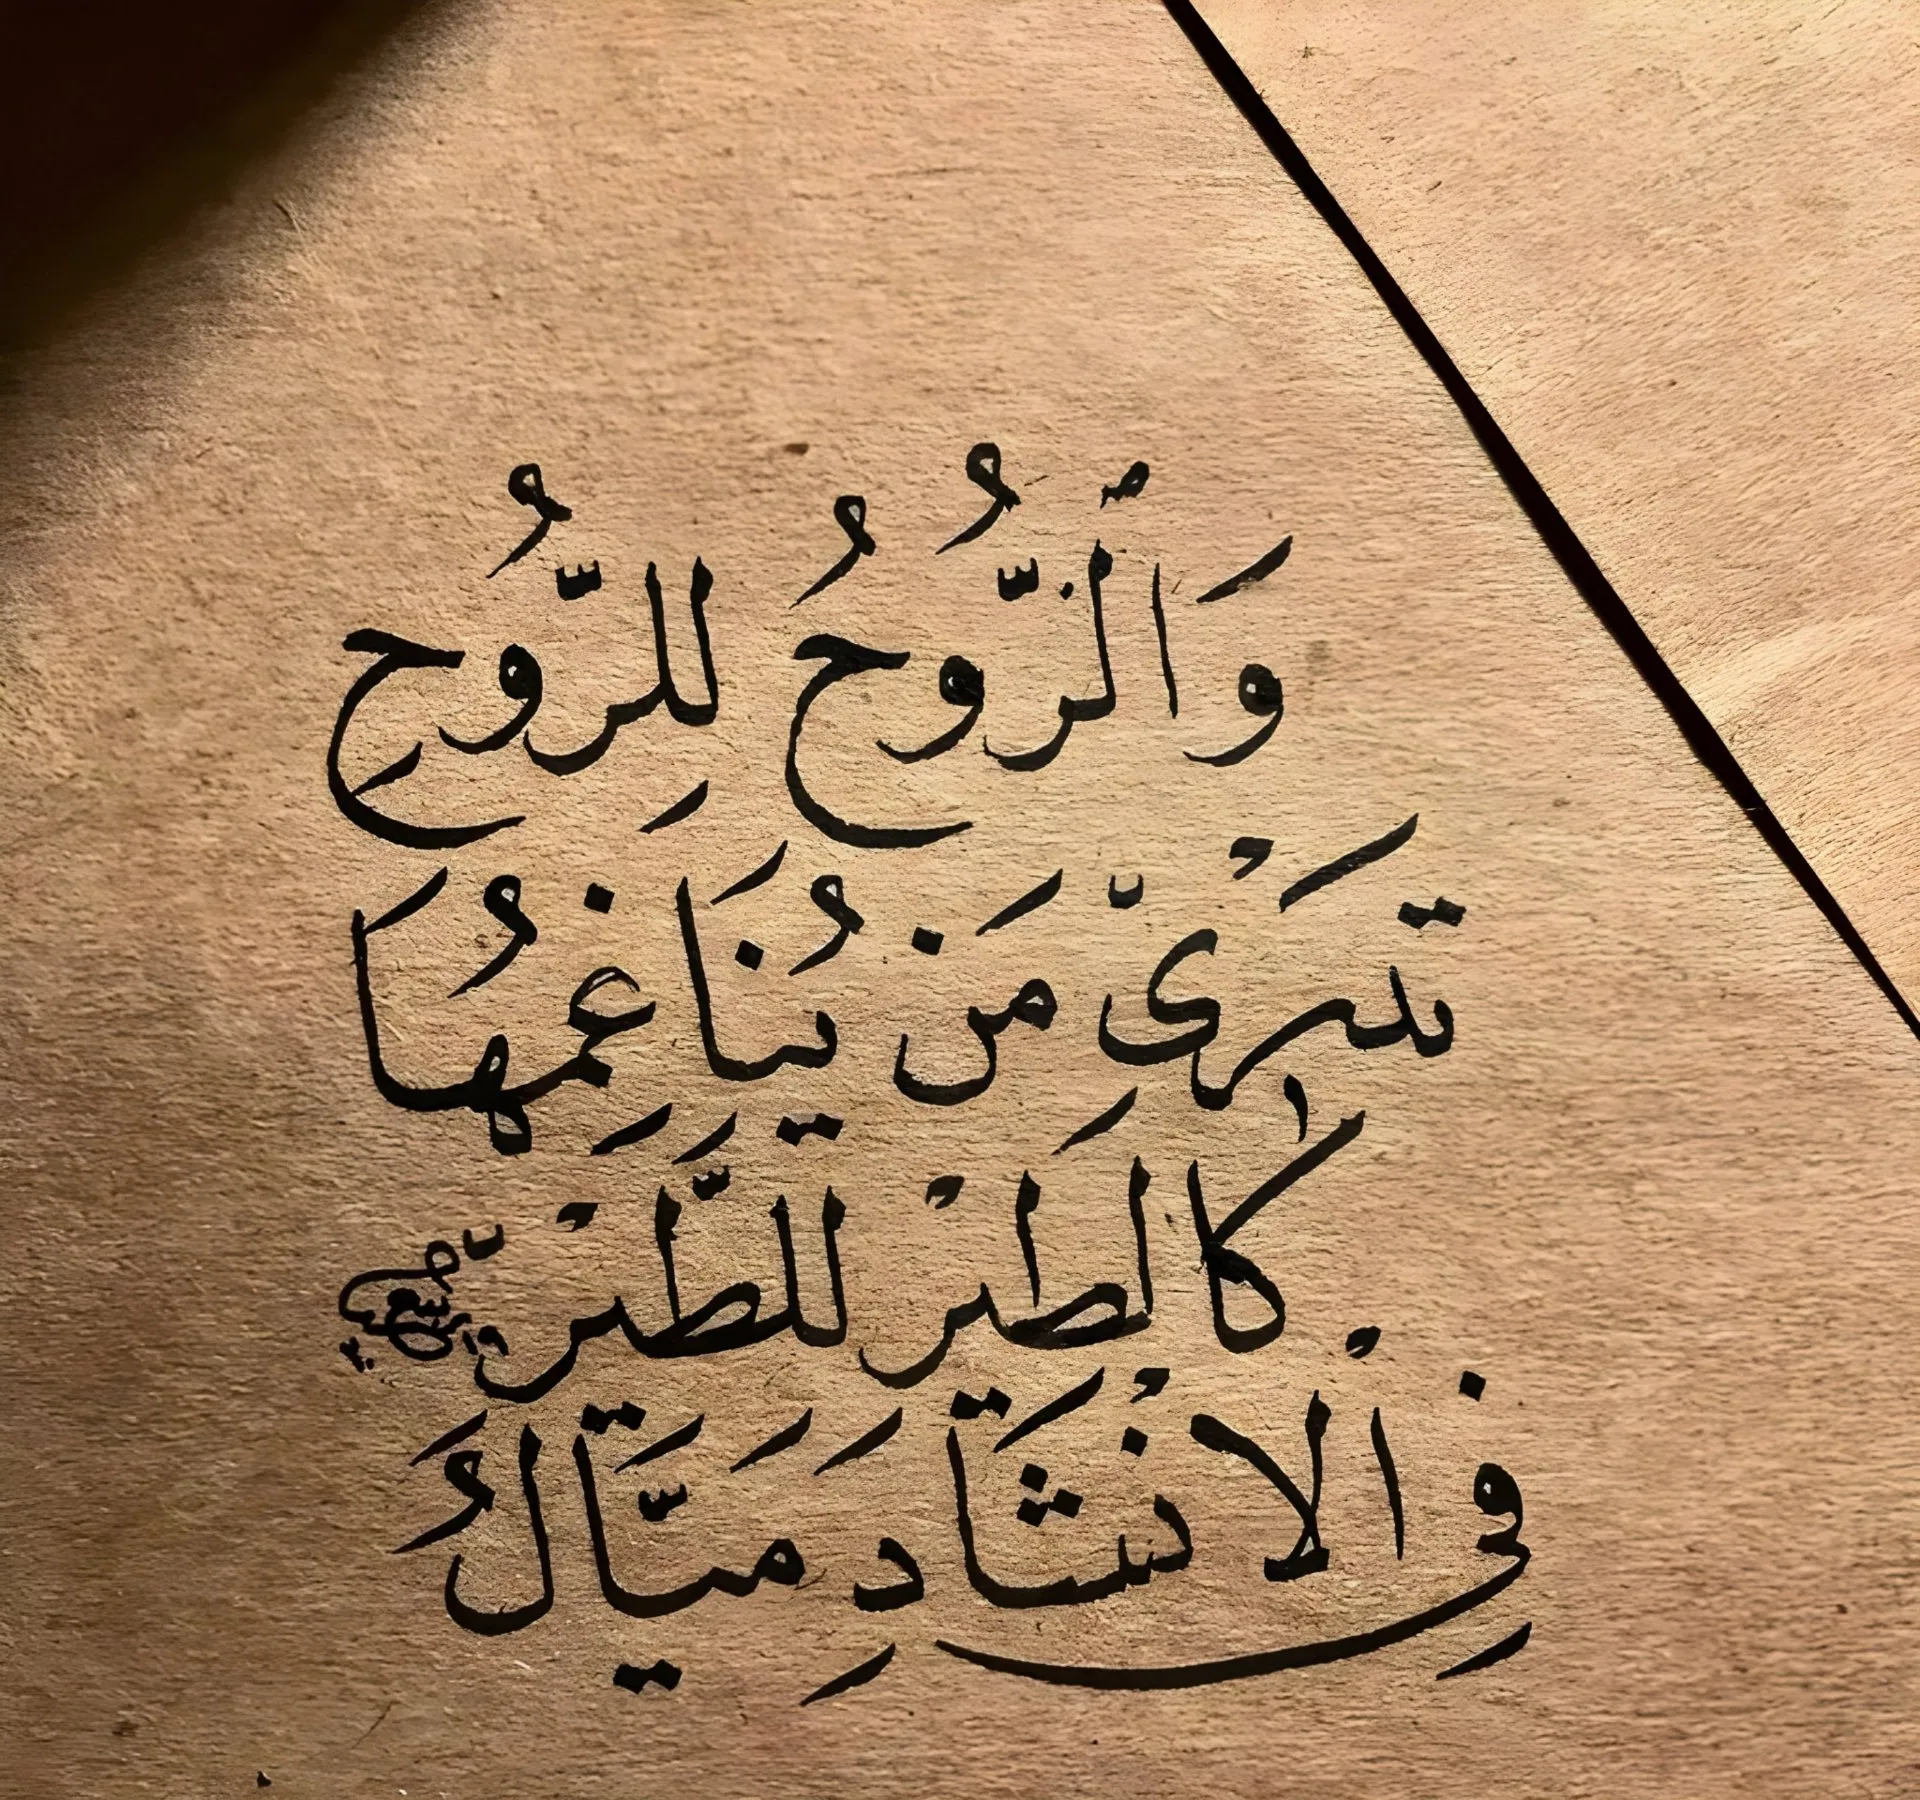 وَٱلرُّوحُ لِلرُّوحِ
تَدْرى مَن يُنَاغِمُهَا
كَالطَيْرِ لِلطَّيْرِ
فِي الْإنْشَادِ مَيَّالُ